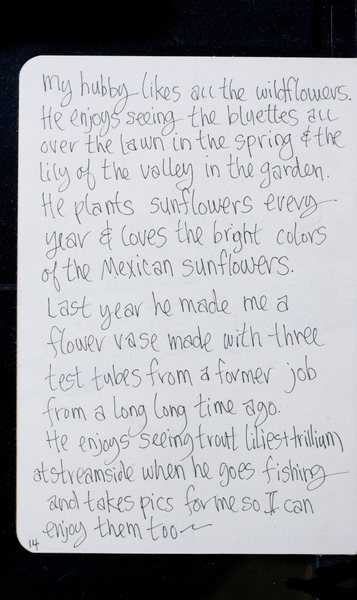 My hubby likes all the wildflowers.
He enjoys seeing the bluettes all
over the lawn in the spring & the
lily of the valley in the garden.
He plants sunflowers every
year & loves the bright colors
of the Mexican sunflowers.
Last year he made me a
flower vase made with three
test tubes from a former job
from a long long time ago.
He enjoys seeing trout lilies + trillium
at streamside when he goes fishing
and takes pics for me so I can
enjoy them too~
14